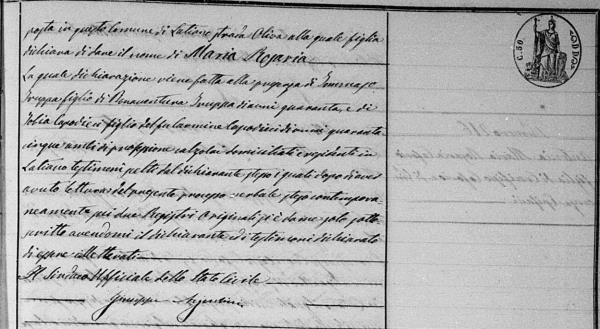 posta in questo Comune di Latiano strada Oliva alla quale figlia
dichiara di dare il nome di Maria Rosaria
La quale dichiarazione viene fatta alla presenza di
figlio di Bonaventura di anni quaranta, e di
figlio del fu Carmine di anni quaranta
cinque ambi di professione calzolai domiciliati e residenti in
Latiano testimoni scelti dal dichiarante stesso i quali dopo di aver
avuto lettura del presente processo verbale steso contempora-
neamente sui due Registri originali, si è da me solo sotto-
scritto avendomi il dichiarante ed i testimoni dichiarato
di essere illetterati
Il Sindaco Uffiziale dello Stato Civile
Giuseppe
C. 50